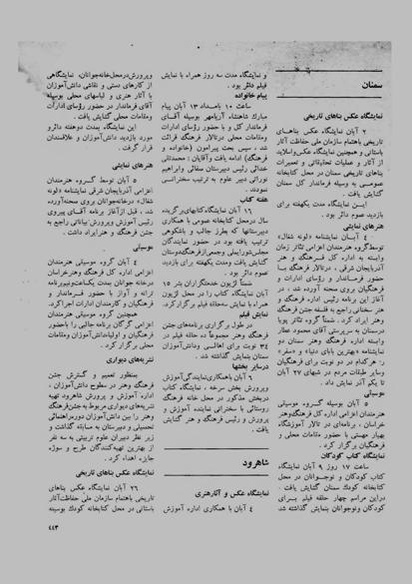 سمنان
نمایشگاه عکس بناهای تاریخی
۲ آبان نمایشگاه عکس بناهــای
تاریخی باهتمام سازمان ملی حفاظت آثار
باستانی و همچنین نمایشگاه عکس واسلاید
از آثار و عملیات تحقیقاتی و تعمیرات
بناهای تاریخی سمنان در محل کتابخانه
عمومی به وسیله فرماندار کل سمنان
گشایش یافت.
ایــن نمایشگاه مدت یکهفته برای
بازدید عموم دائر بود.
هنرهای نمایشی
۴ آبان نمایشنامه «لونه شغال»
توسط گروه هنرمندان اعزامی تئاتر زمان
وابسته به اداره کل فــرهنگ و هنر
آذربایجان شرقی، درتالار فرهنگ بــا
حضور فرماندار و رؤسای ادارات و
فرهنگیان بروی صحنه آورده شد، در
آغاز این برنامه رئیس اداره فرهنگ و
هنر سخنانی راجع به فلسفه جشن فرهنگ
وهنر ایراد کرد، ضمناً گروه تئاتر پویا
درسمنان به سرپرستی آقای محمود عطار
وابسته اداره فرهنگ وهنر سمنان دو
نمایشنامه «بهترین بابای دنیا» و «سفر»
را هرکدام در دو نوبت برای فرهنگیان
وسایر طبقات مردم در شبهای ۲۷ آبان
تا یکم آذر نمایش داد.
موسیقی
۵ آبان بوسیله گروه موسیقی
هنرمندان اعزامی اداره کل فرهنگ وهنر
خراسان، برنامه‌ای در تالار آموزشگاه
بهیار مهستی با حضور مقامات محلی و
فرهنگیان برگزار کرد.
نمایشگاه کتاب کودکان
ساعت ۱۷ روز ۹ آبان نمایشگاه
کتاب کودکان و نوجوانان در محل
کتابخانه کودک سمنان گشایش یافت.
دراین مراسم چهار حلقه فیلم بــرای
کودکان ونوجوانان بنمایش گذاشته شد
و نمایشگاه مدت سه روز همراه با نمایش
فیلم دائر بود.
پیام خانواده
ساعت ۱۰ بامــداد ۱۳ آبان پیام
مبارک شاهنشاه آریامهر بوسیله آقــای
فرماندار کل و با حضور رؤسای ادارات
ومقامات محلی درتالار فرهنگ قرائت
شد، سپس بحث پیرامون (خانواده و
فرهنگ) ادامه یافت وآقایان: محمدتقی
خدائی رئیس دبیرستان سقائی وابراهیم
نورائی دبیر علوم به ترتیب سخنرانــی
نمودند.
هفته کتاب
۱۶ آبان نمایشگاه کتابهای برگزیده
سال درمحل کتابخانه عمومی با همکاری
دبیرستانها که بطرز جالب و باشکوهی
ترتیب یافته بود در حضور نمایندگان
مجلس شورایملی وجمعی از فرهنگ دوستان
گشایش یافت ومدت یکهفته برای بازدید
عموم دائر بود.
ضمناً لژیون خدمتگزاران بشر ۱۵
آبان نمایشگاه کتاب را در محل لژیون
همراه با نمایش سه حلقه فیلم برگزار کرد.
نمایش فیلم
در طول برگزاری برنامه‌های جشن
فرهنگ وهنر مجموعاً ده حلقه فیلم در
۳۴ نوبت برای اهالــی ودانش‌آموزان
سمنان بنمایش گذاشته شد.
درسایر بخشها
۶ آبان باهمکاری نمایندگی آموزش
وپرورش بخش سرخه، نمایشگاه کتاب
دربخش مذکور در محل خانه فرهنگ
روستائی با سخنرانی نماینده آموزش و
پرورش و رئیس فرهنگ و هنر گشایش
یافت.
شاهرود
نمایشگاه عکس و آثار هنری
۴ آبان با همکاری اداره آموزش
وپرورش درمحل خانه جوانان، نمایشگاهی
از کارهای دستی و نقاشی دانش‌آموزان
با آثار هنری و لباسهای محلی بوسیله
آقای فرماندار در حضور رؤسای ادارات
ومقامات محلی گشایش یافت.
این نمایشگاه بمدت دوهفته دائر و
مورد بازدید دانش‌آموزان و علاقمندان
قرار گرفت.
هنرهای نمایشی
۵ آبان توســط گروه هنرمندان
اعزامی آذربایجان شرقی نمایشنامه «لونه
شغال» درخانه جوانان بروی صحنه آورده
شد، قبل از آغاز برنامه آقای پیروی
رئیس آموزش وپرورش بیاناتی راجع به
جشن فرهنگ و هنر ایراد داشت.
موسیقی
۴ آبان گروه موسیقی هنرمندان
اعزامی اداره کل فرهنگ وهنر خراسان
درخانه جوانان بمدت یک ساعت ونیم برنامه
ترانه و آواز با حضور فــرماندار و
فرهنگیان و کارمندان ادارات اجرا کرد.
همچنین گروه موسیقی هنرمندان
اعزامی گرگان برنامه جالبی را باحضور
فرهنگیان و اولیاء دانش‌آموزان ومقامات
محلی برگزار کرد.
نشریه‌های دیواری
بمنظور تعمیم و گسترش جشن
فرهنگ وهنر در سطوح دانش‌آموزان،
اداره آموزش و پرورش شاهرود تهیه
نشریه‌های دیواری مربوط به جشن فرهنگ
وهنر را بین دانش‌آموزان دوره راهنمائی
تحصیلی و دبیرستان به مسابقه گذاشت و
زیر نظر دبیران علوم تربیتی به سه نفر
از بهترین تهیه‌کنندگان طرح و سوژه
جایزه اهداء کرد.
نمایشگاه عکس بناهای تاریخی
۲۶ آبان نمایشگاه عکس بناهای
تاریخی باهتمام سازمان ملی حفاظت آثار
باستانی در محل کتابخانه کودک بوسیله
۴۴۳